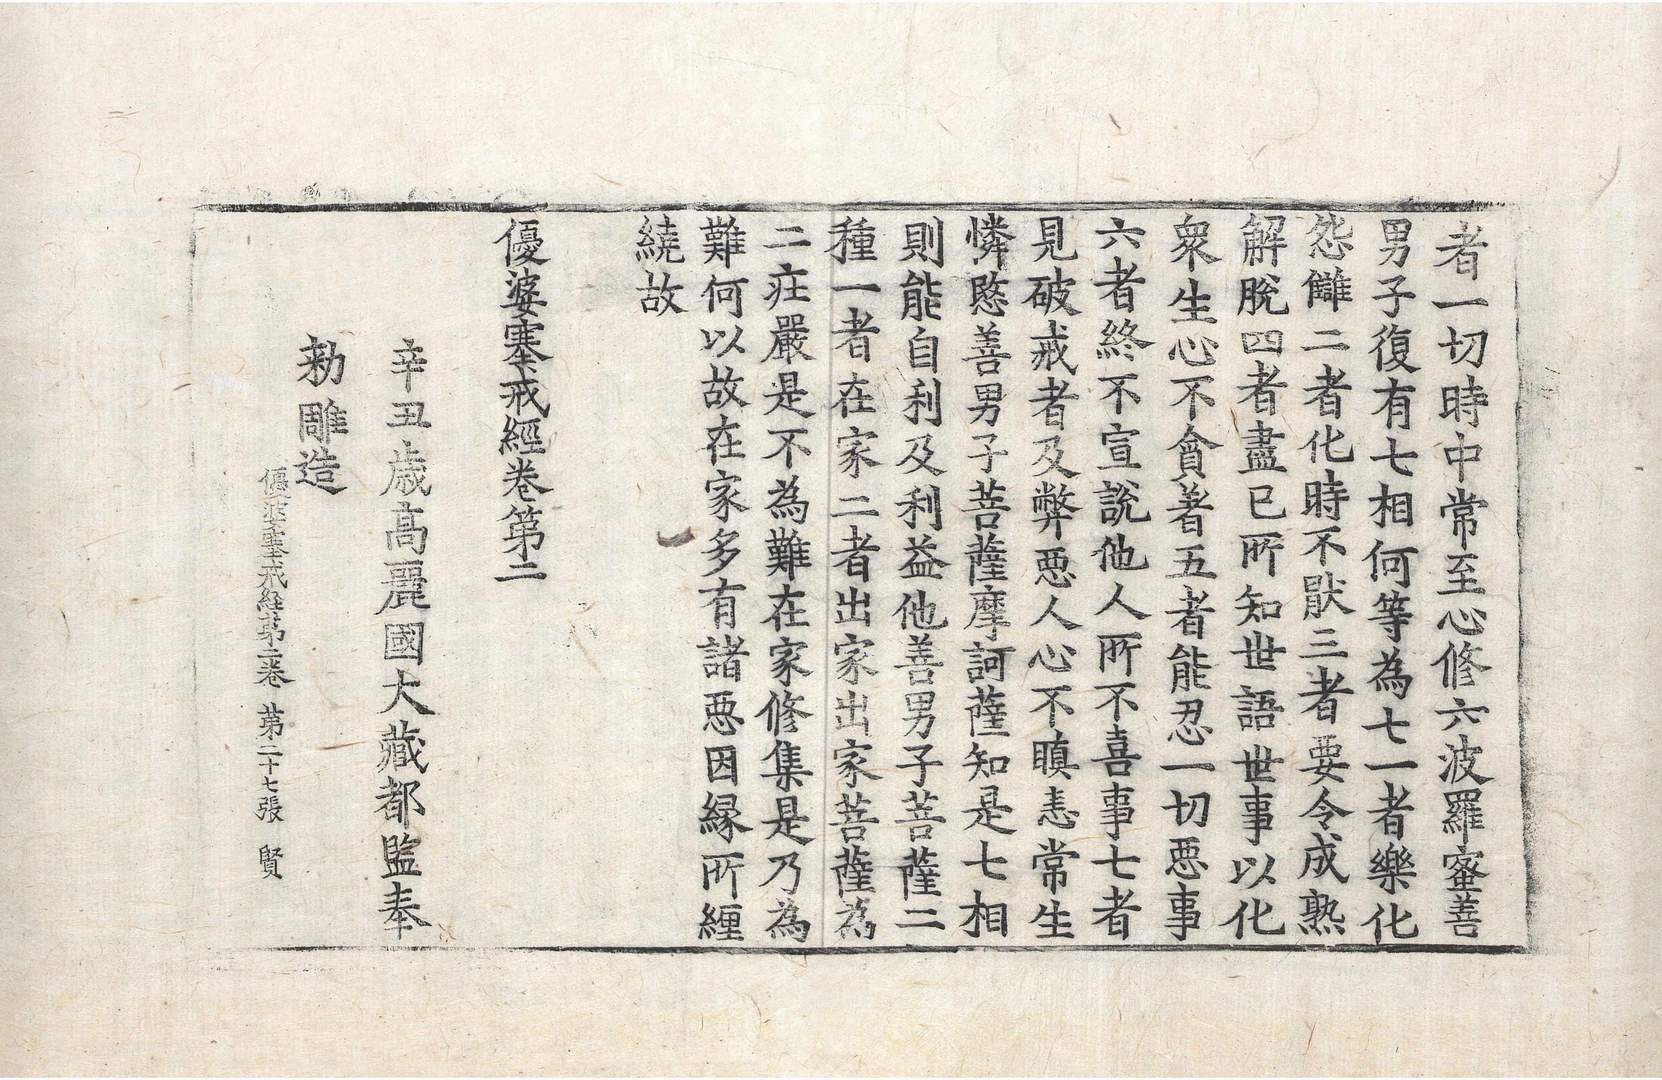 者一切時中常至心修六波羅蜜善
男子復有七相何等為七一者樂化
怨讎二者化時不猒三者要令成熟
解脫四者盡已所知世語世事以化
衆生心不貪著五者能忍一切惡事
六者終不宣說他人所不喜事七者
見破戒者及弊惡人心不瞋恚常生
憐愍善男子菩薩摩訶薩知是七相
則能自利及利益他善男子菩薩二
種一者在家二者出家出家菩薩為
二疘嚴是不為難在家修集是乃為
難何以故在家多有諸惡因縁所纒
繞故
優婆塞戒經卷第二
辛丑歳高麗國大藏都監奉
勑雕造
優婆塞戒経第二卷 第二十七張 賢